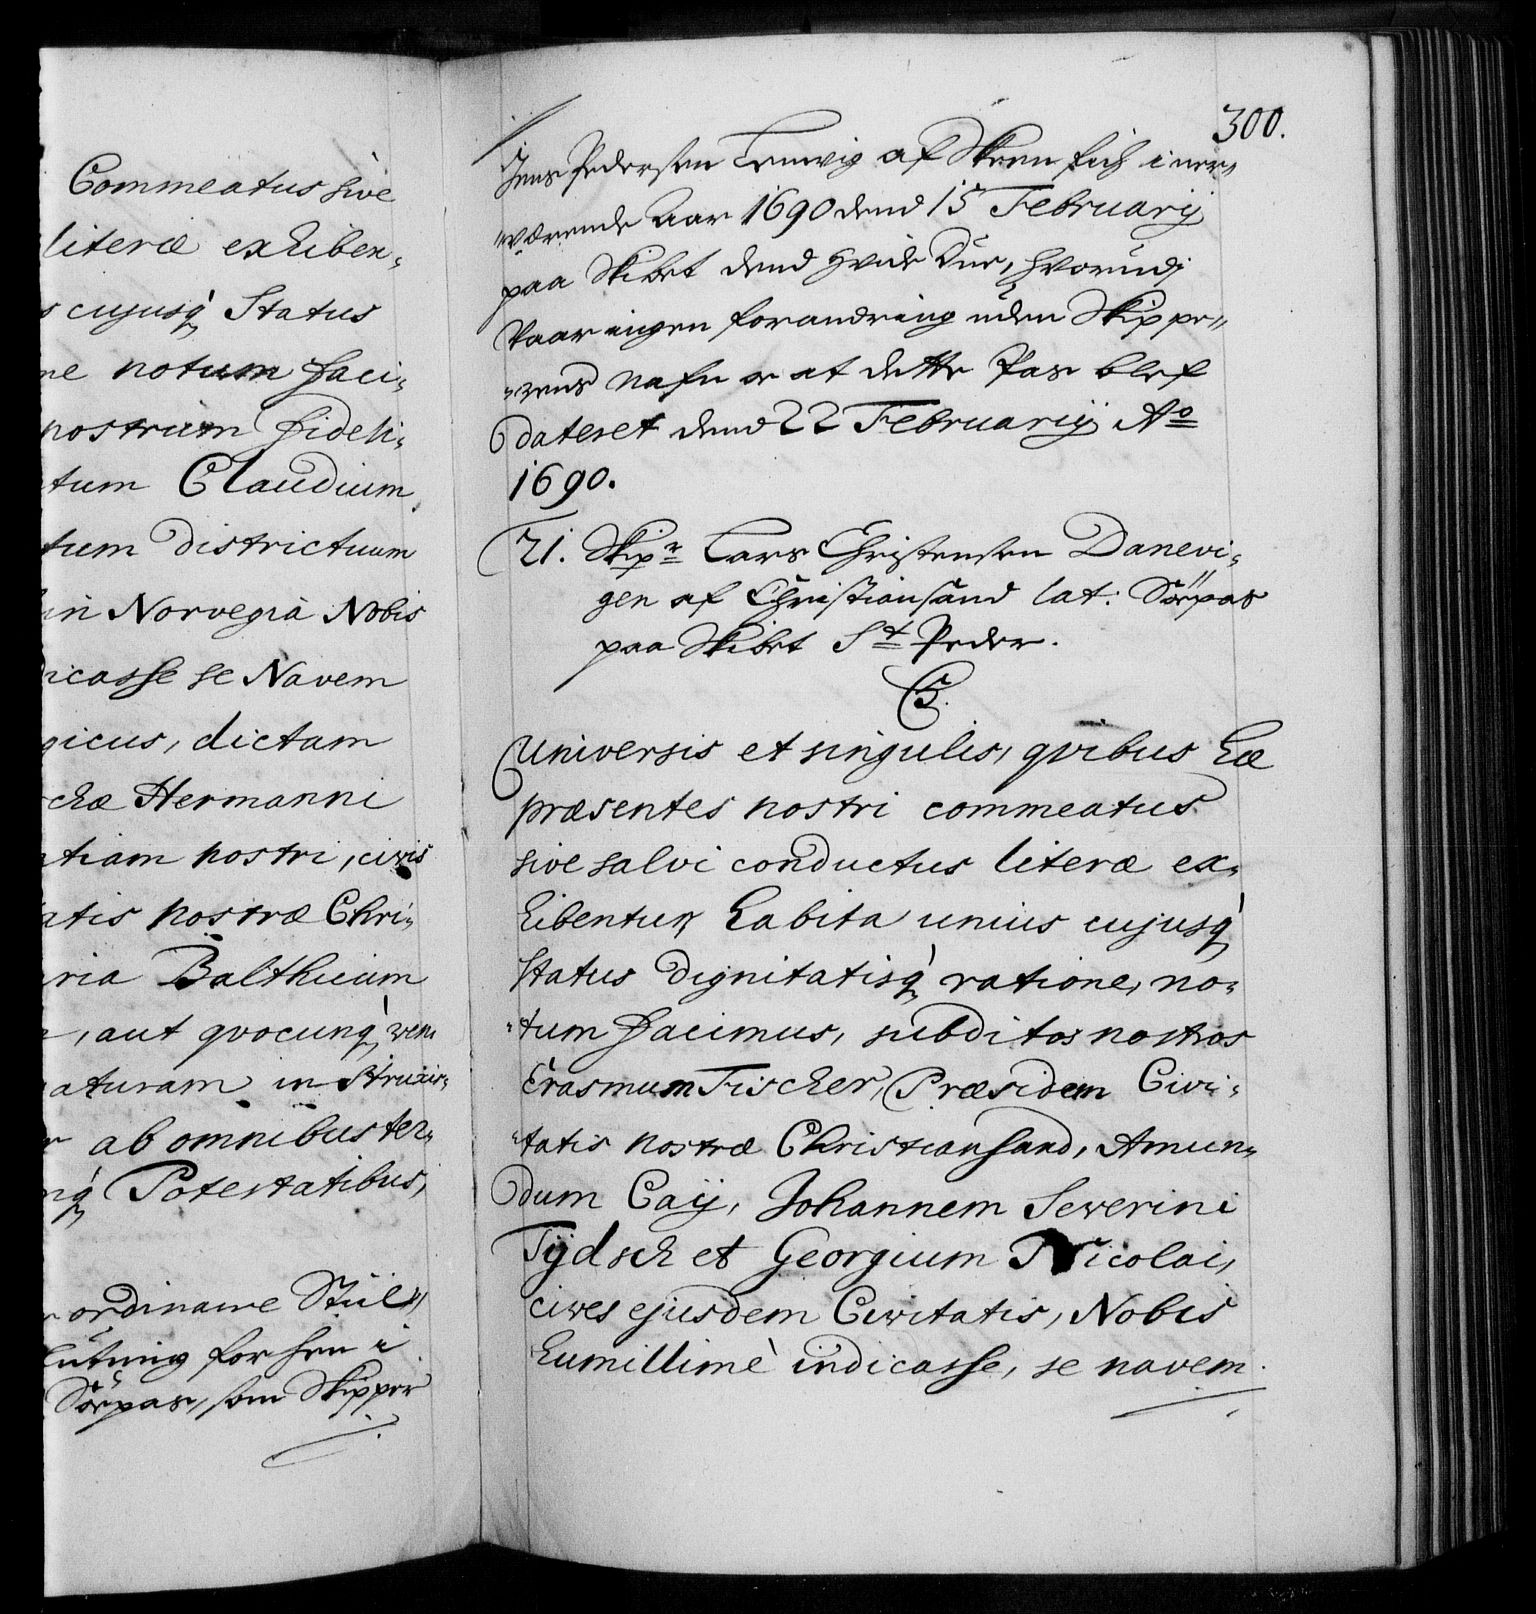 Commeatus sive
literæ exhiben„
s cujusq́ Status
ne notum faci„
nostrum fideli„
tum Claudium
tum districtuum
in Norvegia Nobis
dicasse se Navem
gicus, dictam
chæ Hermanni
tiam nostri, civis
atis nostræ Chri„
ria Balthicum
, aut qvocunq́ ven
aturam instruxis„
r ab omnibus ter„
nq́ Potestatibus,
ordinaire Stiil,
lutning forhen i
Söepas, som Skipper
300.
Jens Pedersen Lemvig af Skeen fich i ner„
„værende Aar 1690 dend 15 Februarij
paa Skibet dend Hvide Due, hvorudj
Vaar ingen forandring uden Skippe„
„rens nafn oc at dette Pas blef
dateret dend 22 Februarij Aº
1690.
21. Skipr Lars Christensen Danevi„
gen af Christiansand lat: Söepas
paa Skibet St Peder.
C5.
Universis et singulis, qvibus hæ
præsentes nostri commeatus
sive salvi conductus literæ ex„
hibentur, habita unius cujusq́
status dignitatisq́ ratione, no„
„tum facimus, subditos nostros
Erasmum Fischer, Præsidem Civi„
„tatis nostræ Christiansand, Amun„
dum Caij, Johannem Severini
Tijdsch et Georgium Nicolai,
cives ejusdem Civitatis, Nobis
humillimè indicasse, se navem